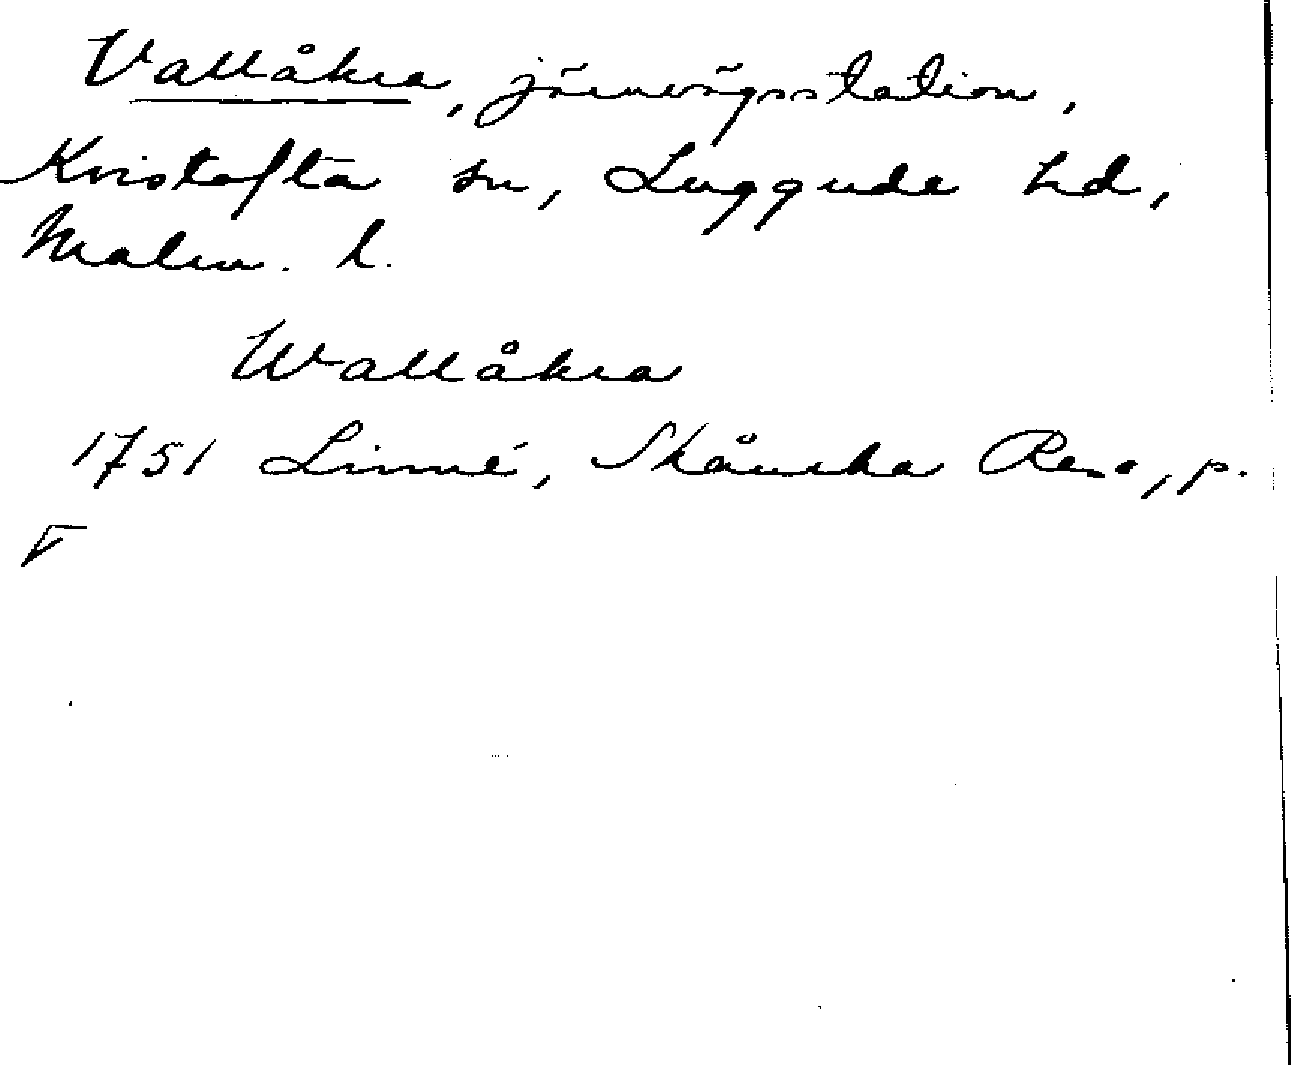 Vallåkra, järnvägsstation,
Kvistofta sn, Luggude hd,
Malm. l.
Wallåkra
1751 Linné, Skånska Resa, p.